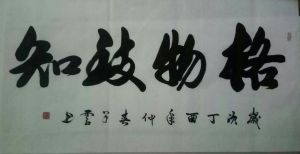 格物致知
岁次丁酉年仲春于云上